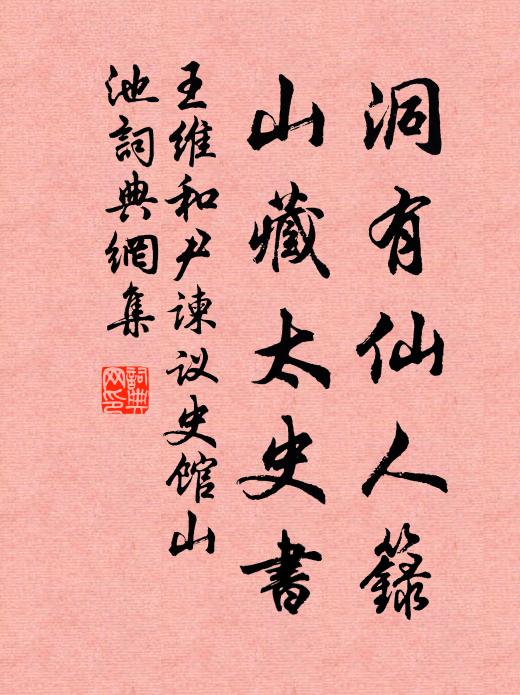 洞有仙人籙
山藏太史書
王維和尹諫议史館山
池詞典網集
詞典網印